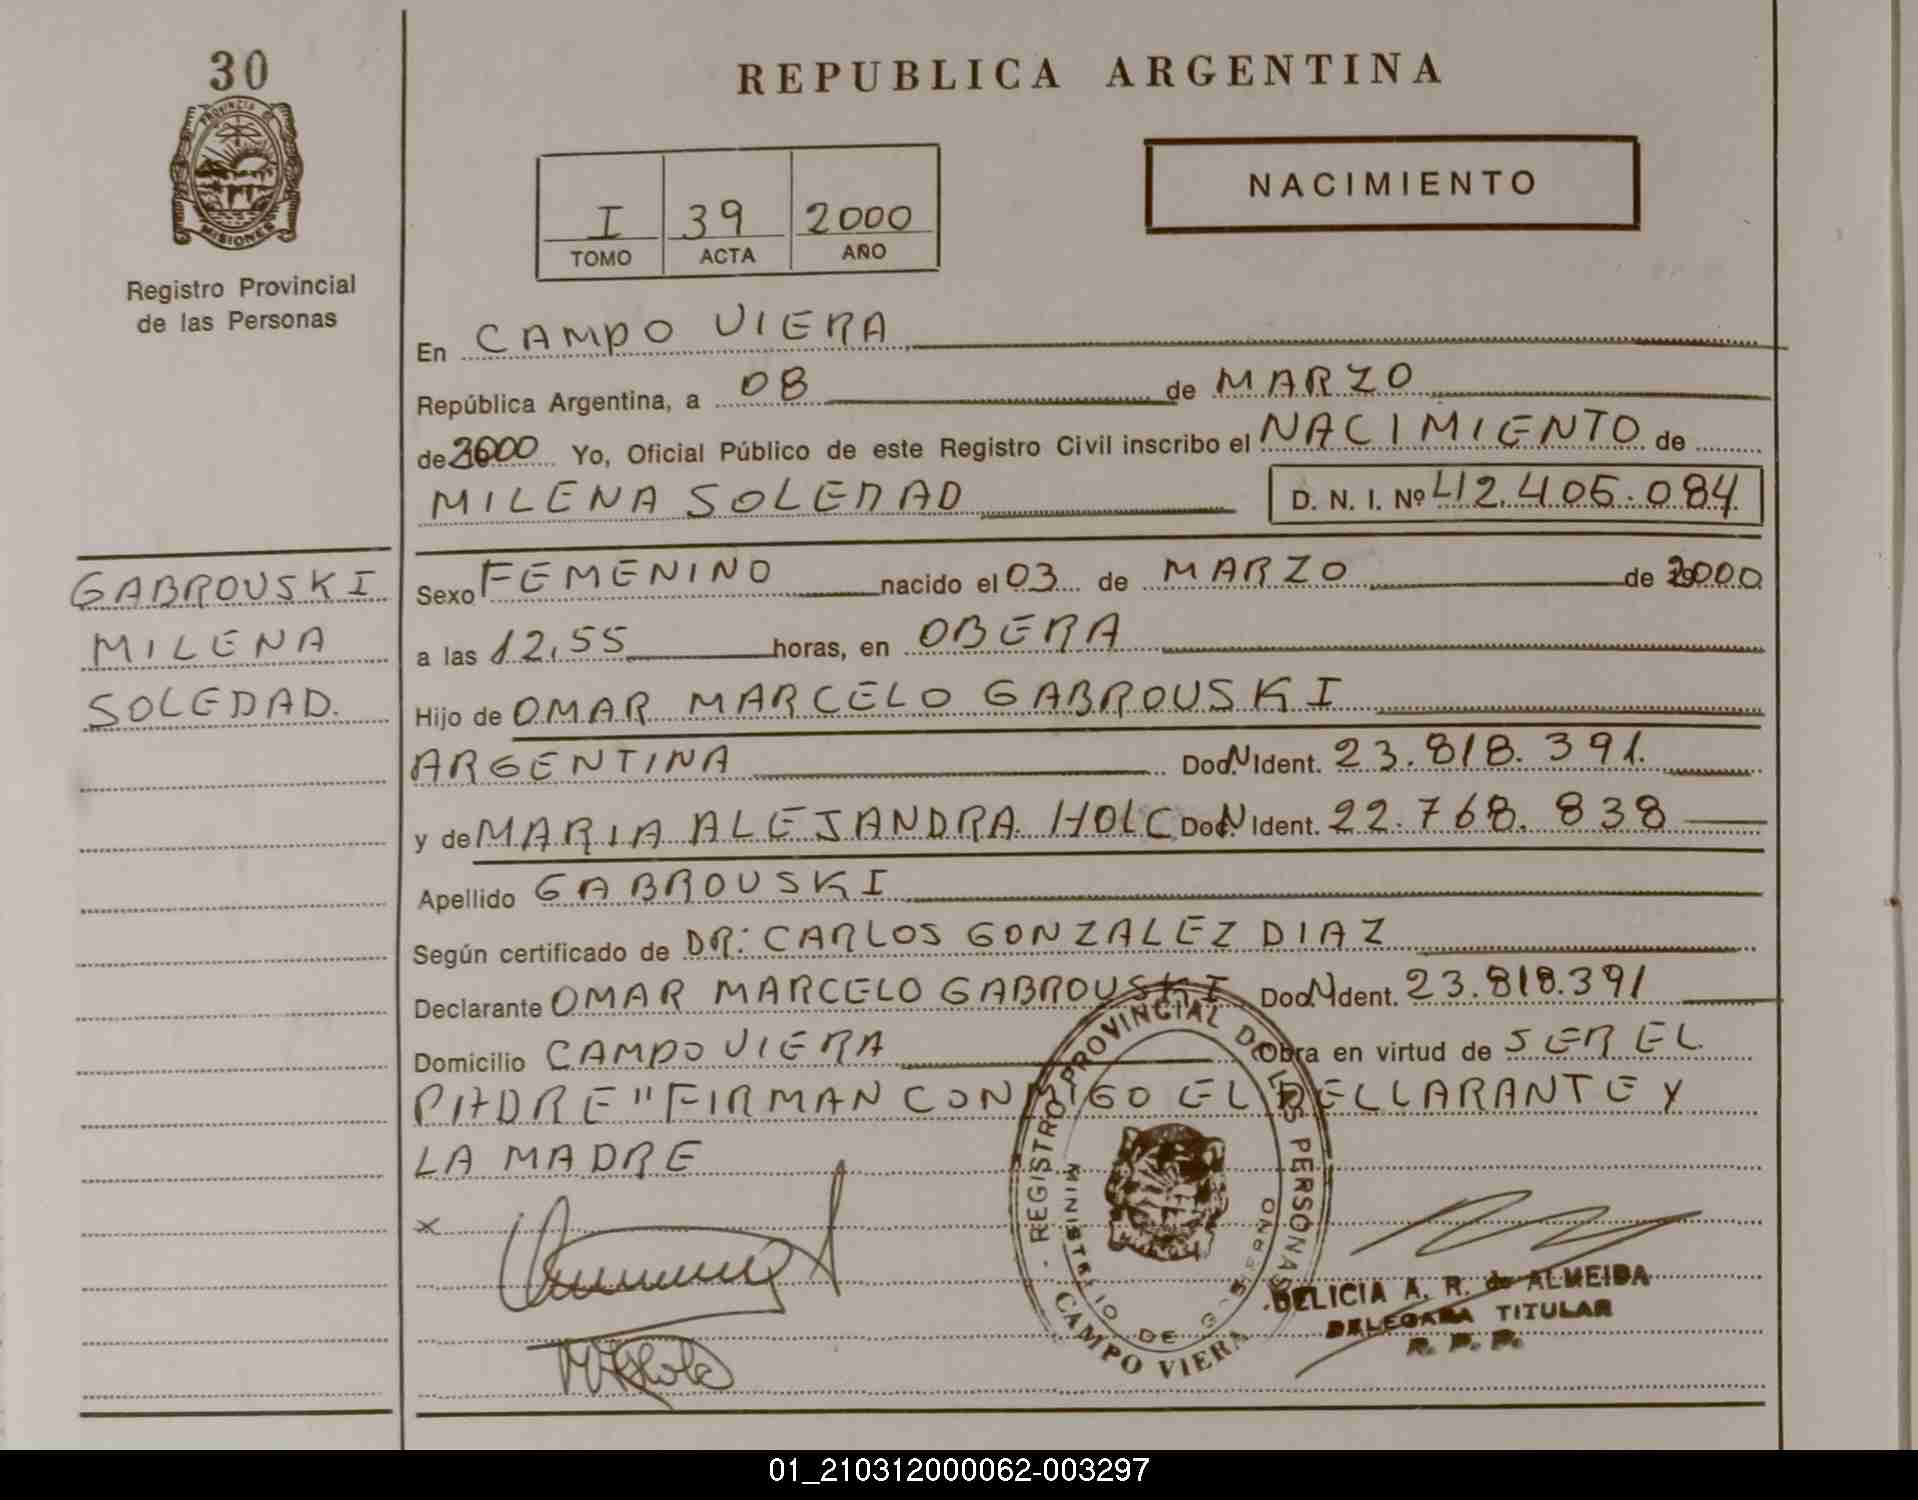 30
PROVINCIA DE
MISIONES
Registro Provincial
de las Personas
GABROUSKI
MILENA
SOLEDAD.
REPUBLICA ARGENTINA
I 39 2000
TOMO ACTA AÑO
NACIMIENTO
En CAMPO VIERA
República Argentina, a 08 de MARZO
de 2000 Yo, Oficial Público de este Registro Civil inscribo el NACIMIENTO de
MILENA SOLEDAD D. N. I. Nº 42.405.084
Sexo FEMENINO nacido el 03 de MARZO de 2000
a las 12,55 horas, en OBERA
Hijo de OMAR MARCELO GABROUSKI
ARGENTINA Doc. N Ident. 23.818.391.
y de MARIA ALEJANDRA HOLC Doc. N Ident. 22.768.838
Apellido GABROUSKI
Según certificado de DR: CARLOS GONZALEZ DIAZ
Declarante OMAR MARCELO GABROUSKI Doc. N Ident. 23.818.391
Domicilio CAMPO VIERA Obra en virtud de SER EL
PADRE " FIRMAN CONMIGO EL DECLARANTE Y
LA MADRE
x
REGISTRO PROVINCIAL DE LAS PERSONAS
MINISTERIO DE GOBIERNO
CAMPO VIERA
DELICIA A. R. de ALMEIDA
DELEGADA TITULAR
R. P. P.
01_210312000062-003297